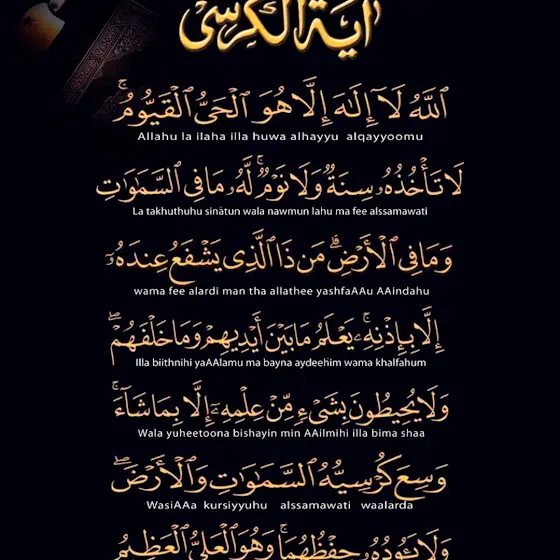 آية الكرسي
ٱللَّهُ لَآ إِلَٰهَ إِلَّا هُوَ ٱلْحَىُّ ٱلْقَيُّومُ ۚ
Allahu la ilaha illa huwa alhayyu alqayyoomu
لَا تَأْخُذُهُۥ سِنَةٌ وَلَا نَوْمٌ ۚ لَّهُۥ مَا فِى ٱلسَّمَٰوَٰتِ
La takhuthuhu sinatun wala nawmun lahu ma fee alssamawati
وَمَا فِى ٱلْأَرْضِ ۗ مَن ذَا ٱلَّذِى يَشْفَعُ عِندَهُۥٓ
wama fee alardi man tha allathee yashfaAAu AAindahu
إِلَّا بِإِذْنِهِۦ ۚ يَعْلَمُ مَا بَيْنَ أَيْدِيهِمْ وَمَا خَلْفَهُمْ ۖ
Illa biithnihi yaAAlamu ma bayna aydeehim wama khalfahum
وَلَا يُحِيطُونَ بِشَىْءٍ مِّنْ عِلْمِهِۦٓ إِلَّا بِمَا شَآءَ ۚ
Wala yuheetoona bishayin min AAilmihi illa bima shaa
وَسِعَ كُرْسِيُّهُ ٱلسَّمَٰوَٰتِ وَٱلْأَرْضَ ۖ
WasiAAa kursiyyuhu alssamawati waalarda
وَلَا يَـُٔودُهُۥ حِفْظُهُمَا ۚ وَهُوَ ٱلْعَلِىُّ ٱلْعَظِيمُ